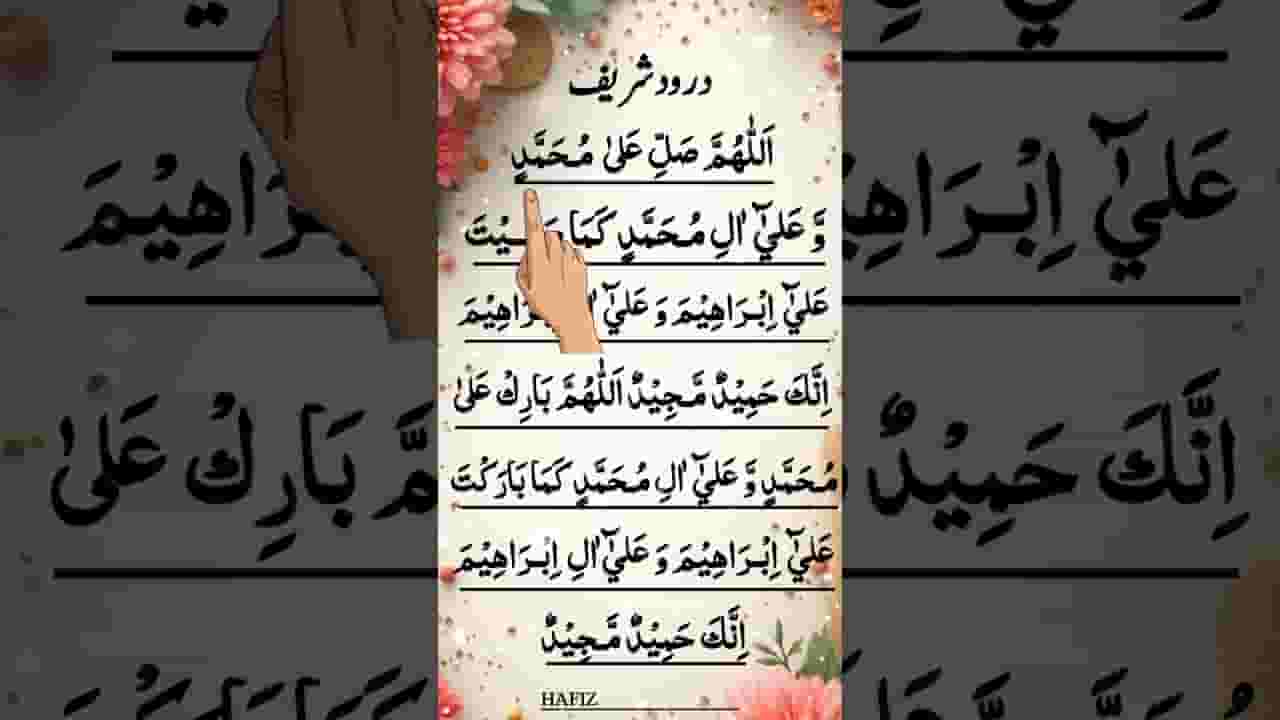 درود شریف
اَللّٰهُمَّ صَلِّ عَلىٰ مُحَمَّدٍ
وَّ عَلیٰٓ اٰلِ مُحَمَّدٍ كَمَا
عَلیٰٓ اِبْرَاهِيْمَ وَ عَلیٰٓ
اِنَّكَ حَمِيْدٌ مَّجِيْدٌ اَللّٰهُمَّ بَارِكْ عَلىٰ
مُحَمَّدٍ وَّ عَلیٰٓ اٰلِ مُحَمَّدٍ كَمَا بَارَكْتَ
عَلیٰٓ اِبْرَاهِيْمَ وَ عَلیٰٓ اٰلِ اِبْرَاهِيْمَ
اِنَّكَ حَمِيْدٌ مَّجِيْدٌ
HAFIZ